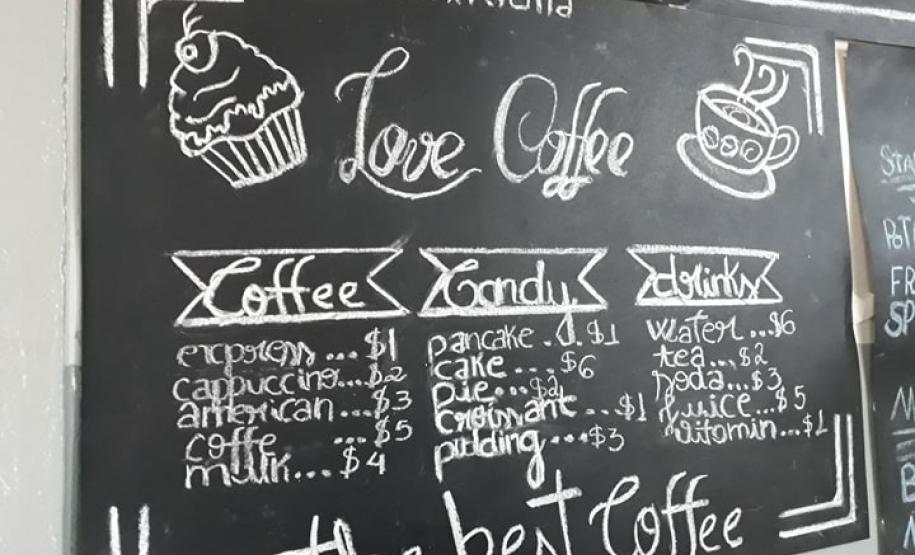 Love Coffee
Coffee
express ... $1
cappuccino... $2
american ... $3
coffe ... $5
milk... $4
Candy
pancake ... $1
cake ... $6
pie... $2
croissant .. $1
pudding ... $3
drinks
water ... $6
tea... $2
soda... $3
juice... $5
vitamin... $1
the best Coffee